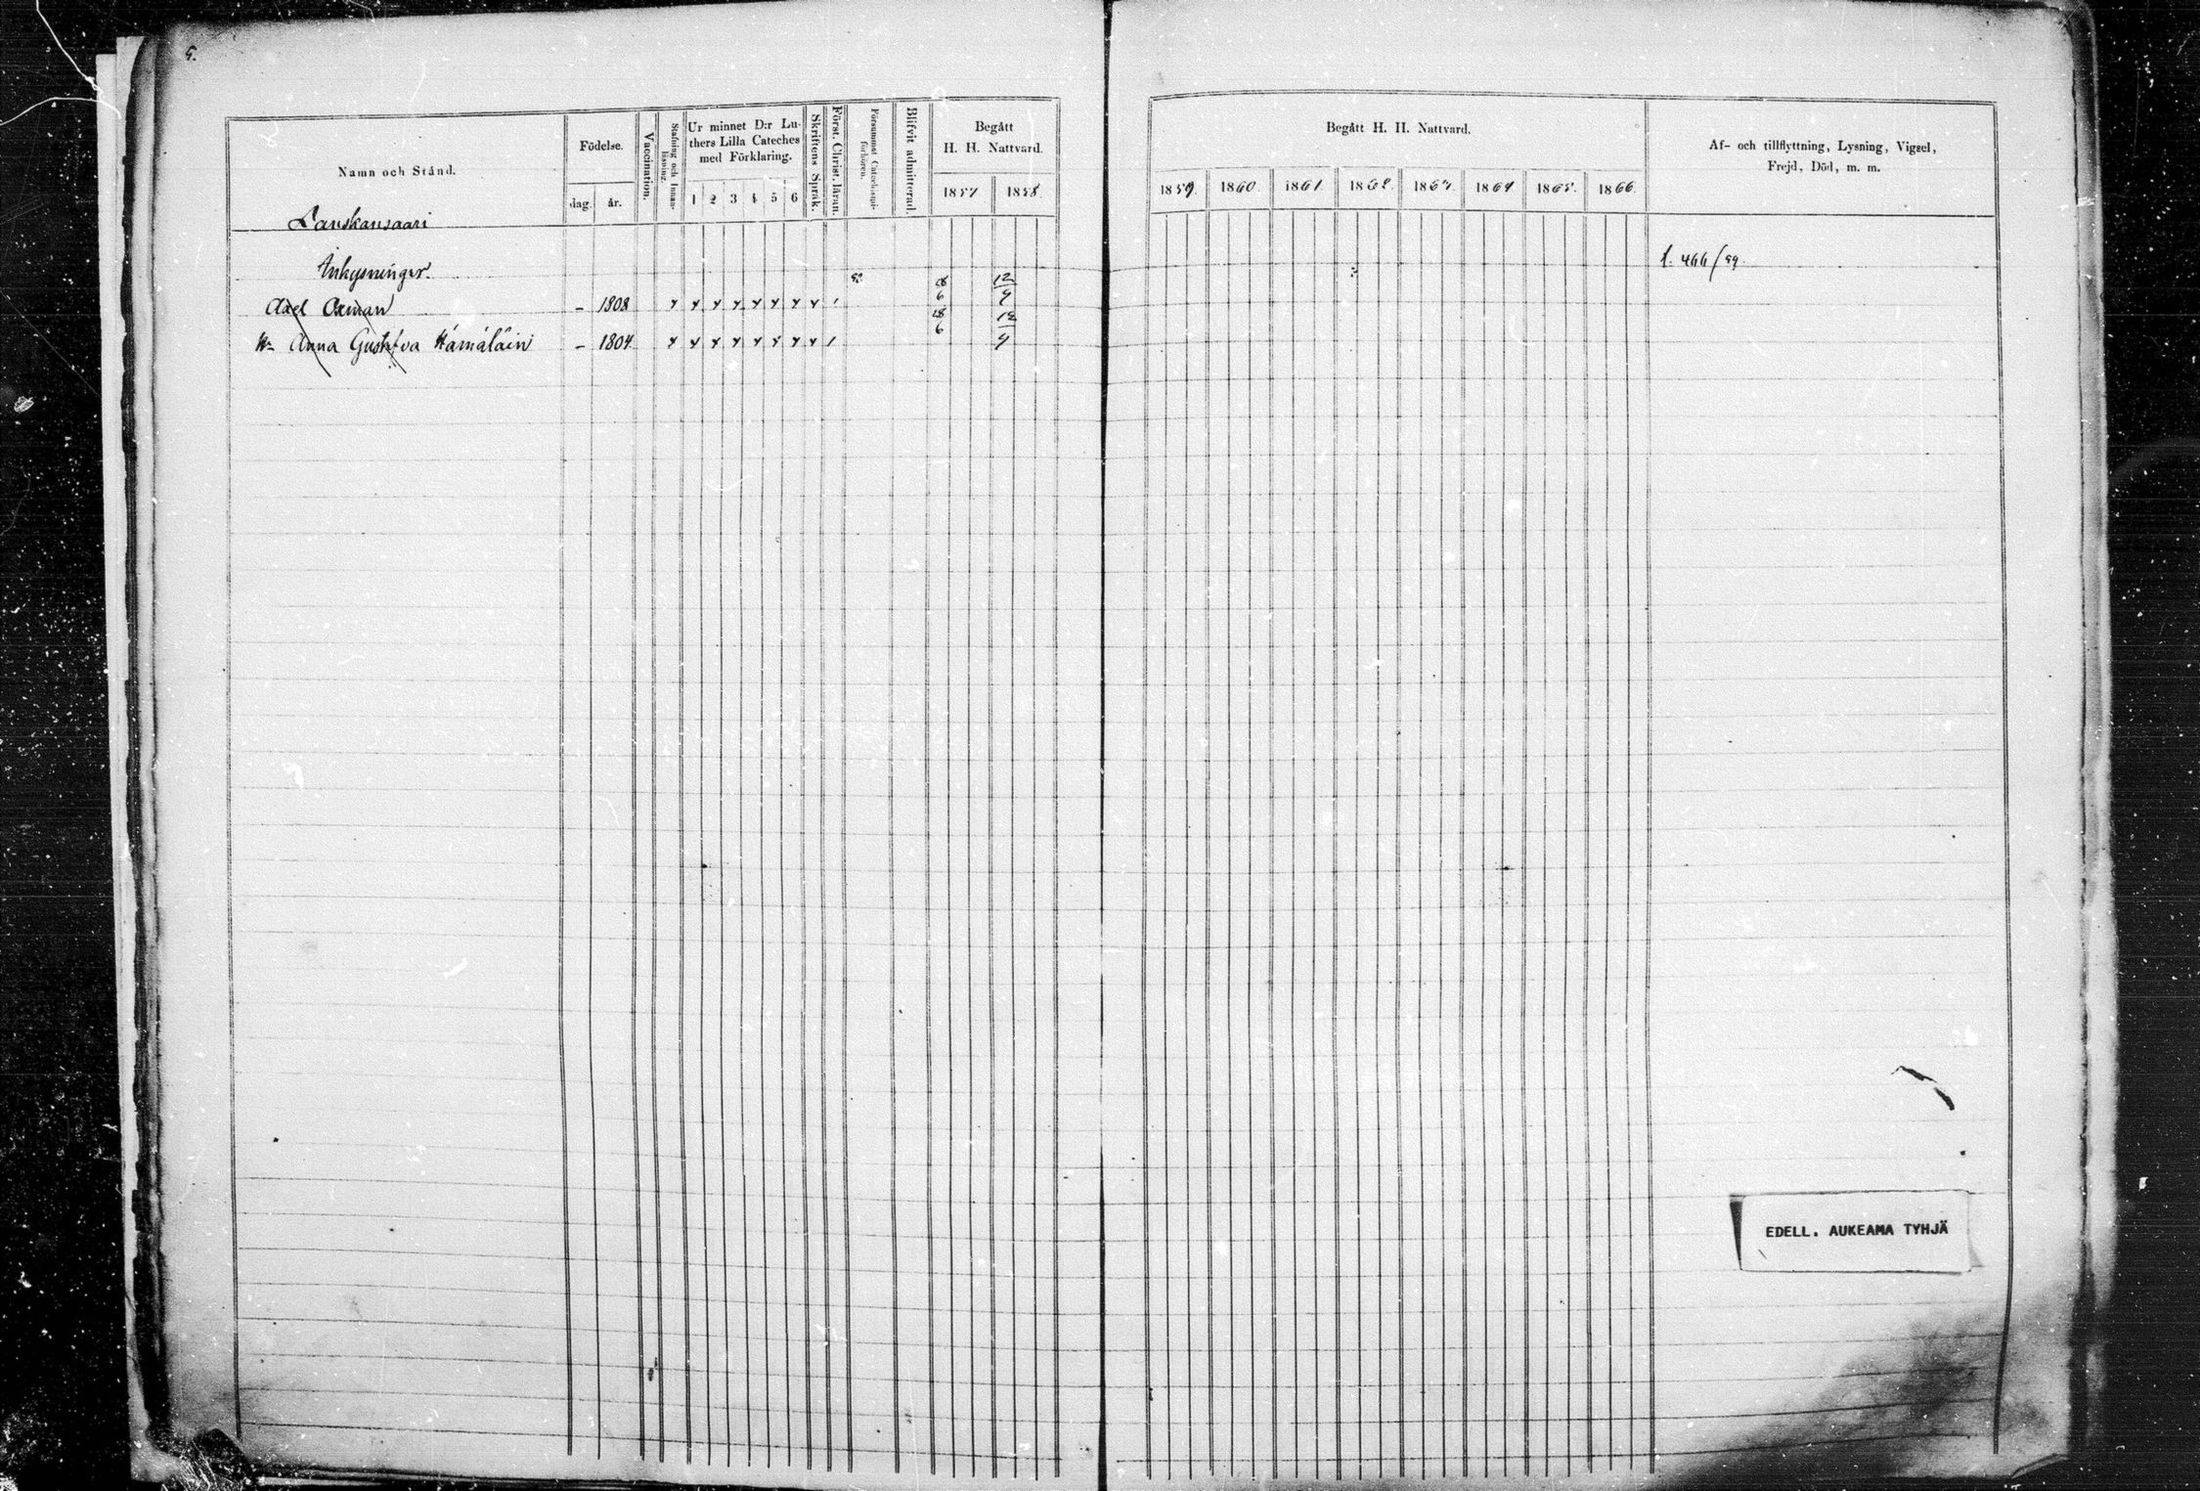 Namn och Stånd.
Födelse.
dag.
år.
Vaccination.
Stafning och Innan-
läsning.
Ur minnet D:r Lu-
thers Lilla Cateches
med Förklaring.
1 2 3 4 5 6
Skriftens Språk.
Först. Christ. läran.
Försummat Catechismi-
förhören.
Blifvit admitterad.
Begått
H. H. Nattvard.
1857 1858
Lanskansaari
Inhysningar.
Axel Oxman - 1808
Anna Gustava Hämäläin - 1804
12
9
12
9
Begått H. H. Nattvard.
1859. 1860. 1861. 1862. 1863. 1864 1865. 1866.
Af- och tillflyttning, Lysning, Vigsel,
Frejd, Död, m. m.
EDELL. AUKEAMA TYHJÄ